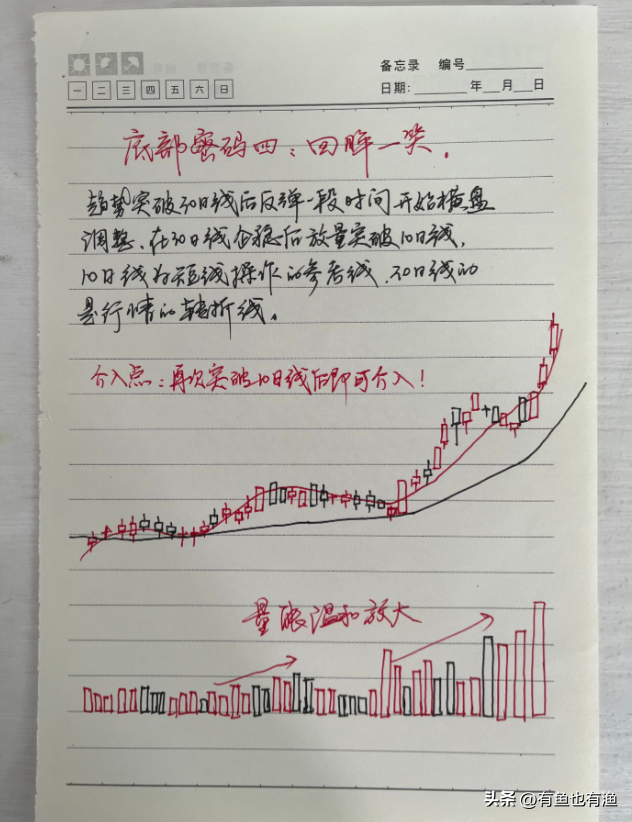 备忘录 编号
一 二 三 四 五 六 日
日期: 年 月 日
底部密码四:回眸一笑.
趋势突破30日线后反弹一段时间开始横盘
调整.在30日线企稳后放量突破10日线,
10日线为短线操作的参考线.30日线的
是行情的转折线。
介入点:再次突破10日线后即可介入!
量能温和放大
头条 @有鱼也有渔